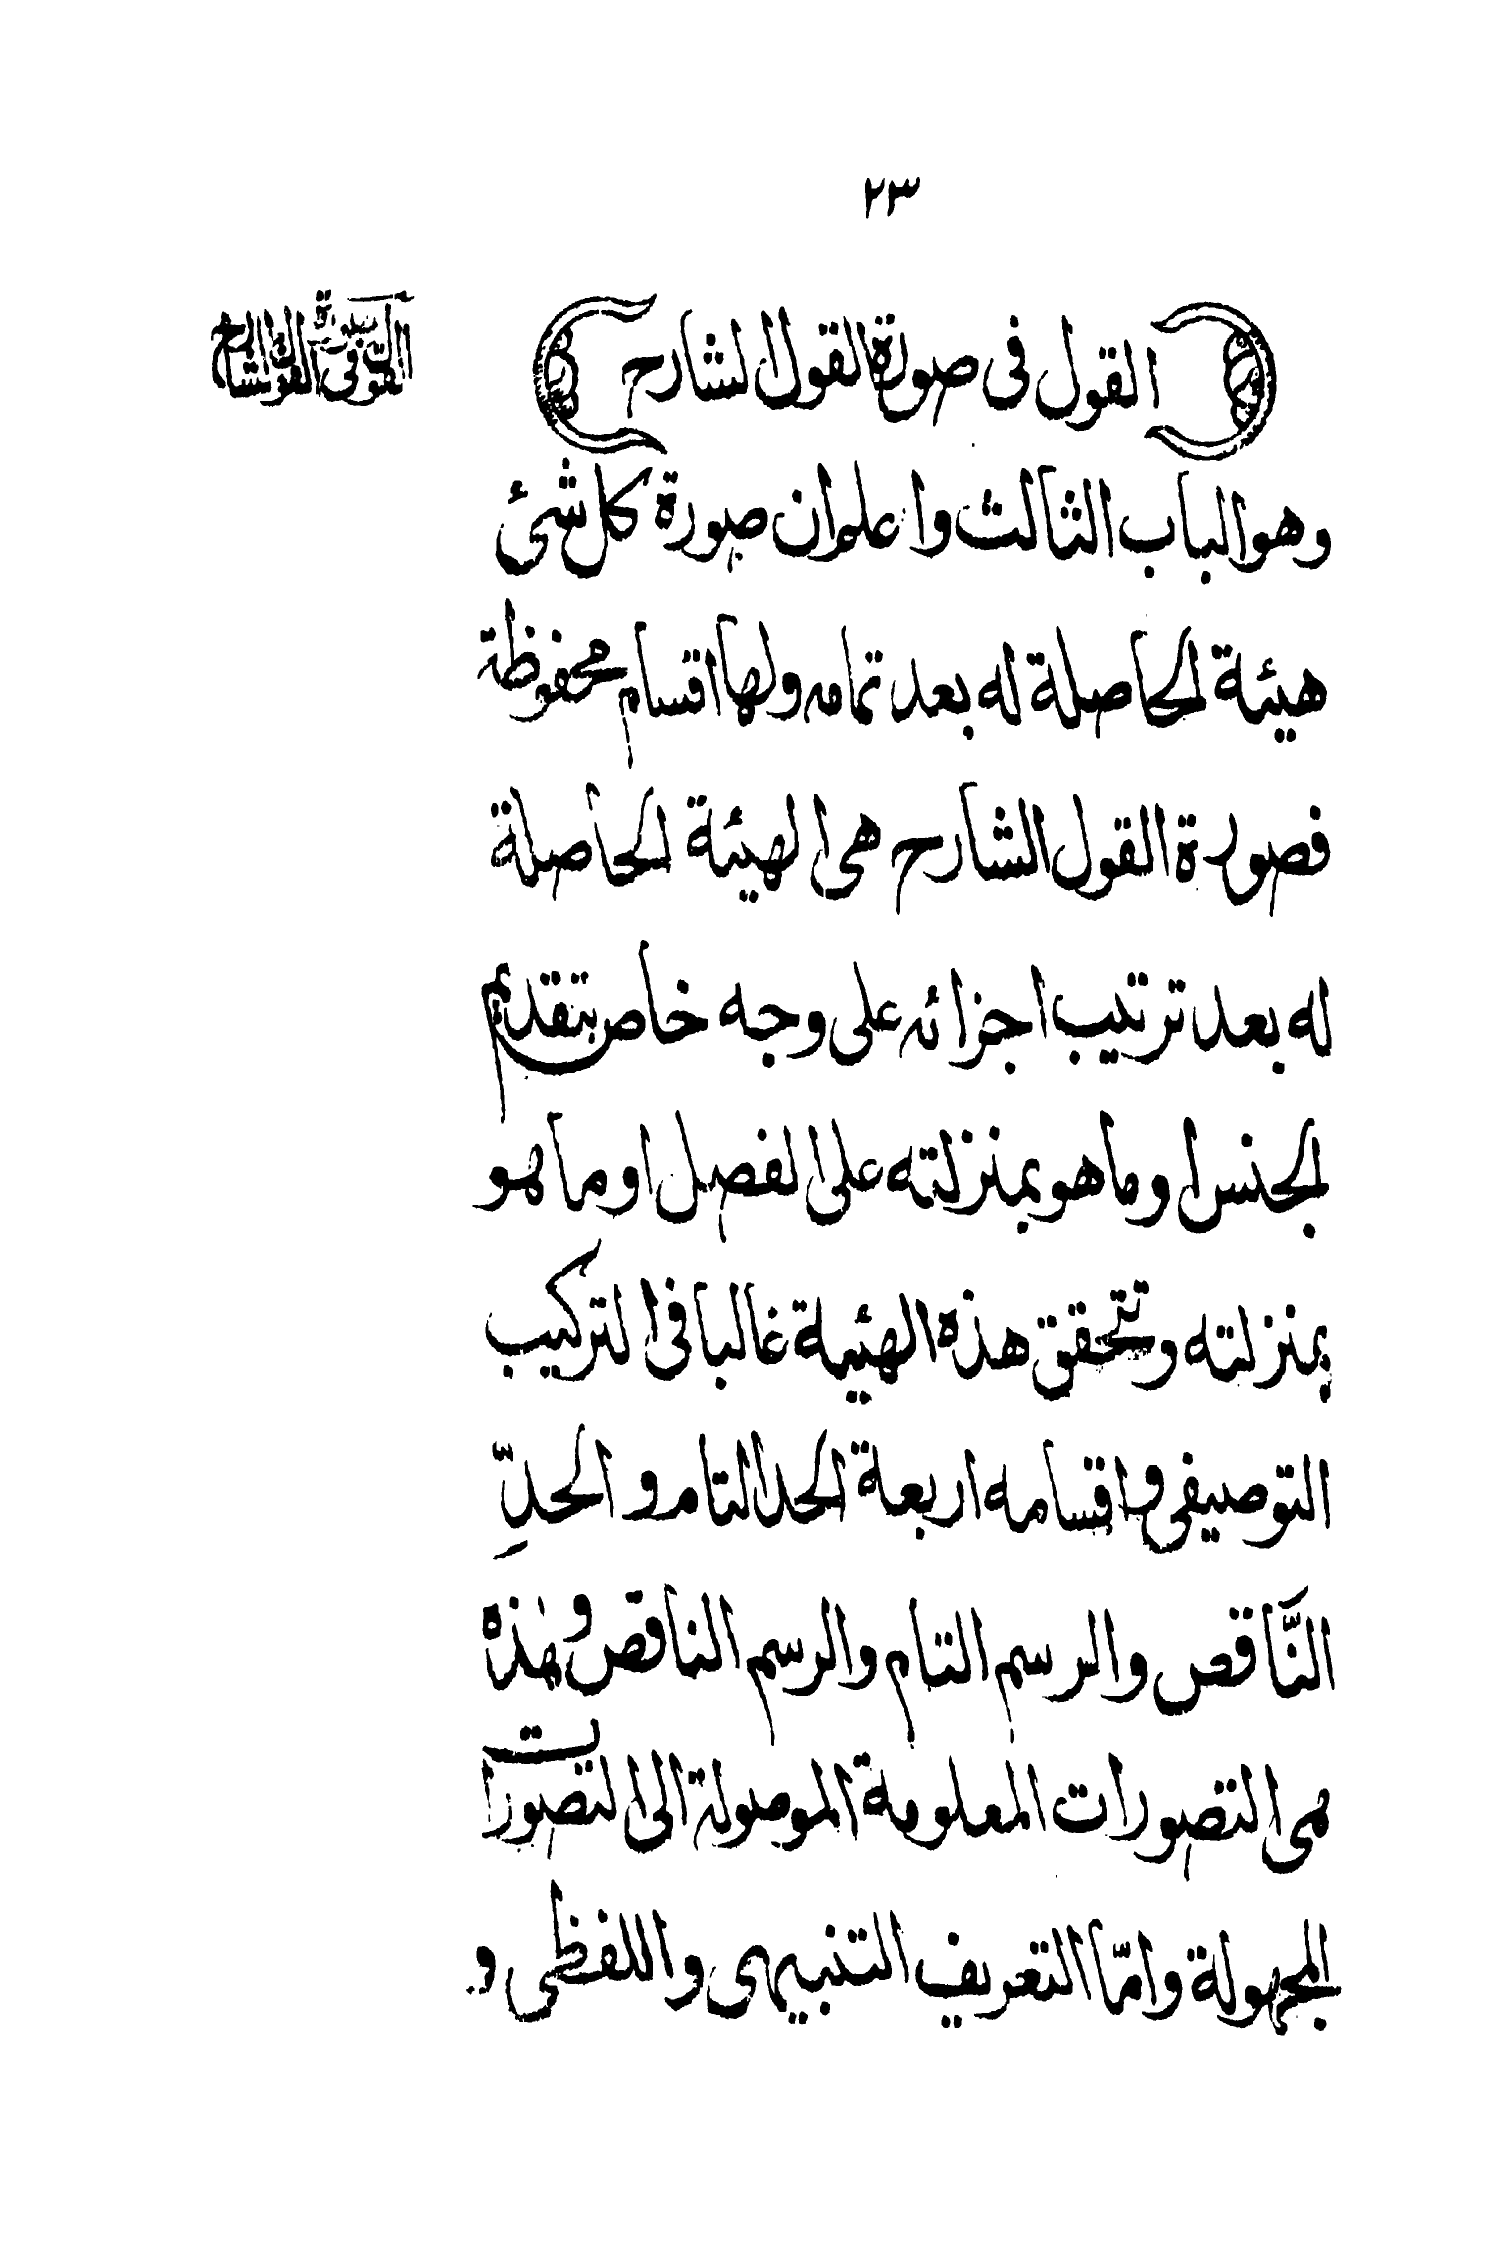 ٢٣
القول فى صورة القول الشارح
القول فى صورة القول الشارح
وهو الباب الثالث واعلم ان صورة كل شئ
هيئة الحاصلة له بعد تمامه ولها اقسام محفوظة
فصورة القول الشارح هى الهيئة الحاصلة
له بعد ترتيب اجزائه على وجه خاص بتقديم
الجنس او ما هو بمنزلته على الفصل او ما هو
بمنزلته وتتحقق هذه الهيئة غالبا فى التركيب
التوصيفى واقسامه اربعة الحد التام و الحدِّ
النَّاقص والرسم التام والرسم الناقص وهٰذه
هى التصورات المعلومة الموصولة الى التصورات
المجهولة وامّا التعريف التنبيهى واللفظى و